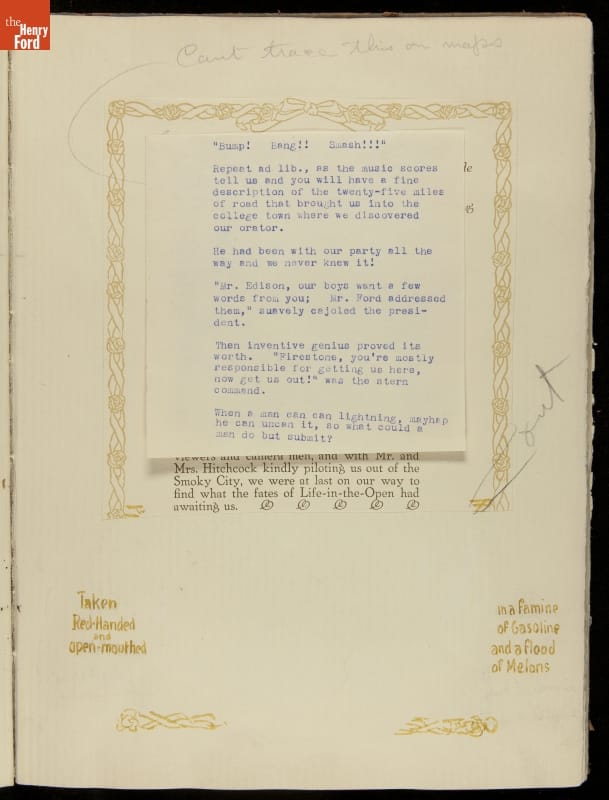 the
Henry
Ford
Cant trace this on maps
"Bump!   Bang!!   Smash!!!"
Repeat ad lib., as the music scores
tell us and you will have a fine
description of the twenty-five miles
of road that brought us into the
college town where we discovered
our orator.
He had been with our party all the
way and we never knew it!
"Mr. Edison, our boys want a few
words from you;   Mr. Ford addressed
them," suavely cajoled the presi-
dent.
Then inventive genius proved its
worth.   "Firestone, you're mostly
responsible for getting us here,
now get us out!" was the stern
command.
When a man can can lightning, mayhap
he can uncan it, so what could a
man do but submit?
viewers and camera men, and with Mr. and
Mrs. Hitchcock kindly piloting us out of the
Smoky City, we were at last on our way to
find what the fates of Life-in-the-Open had
awaiting us.
out
Taken
Red-Handed
and
open-mouthed
in a Famine
of Gasoline
and a flood
of Melons